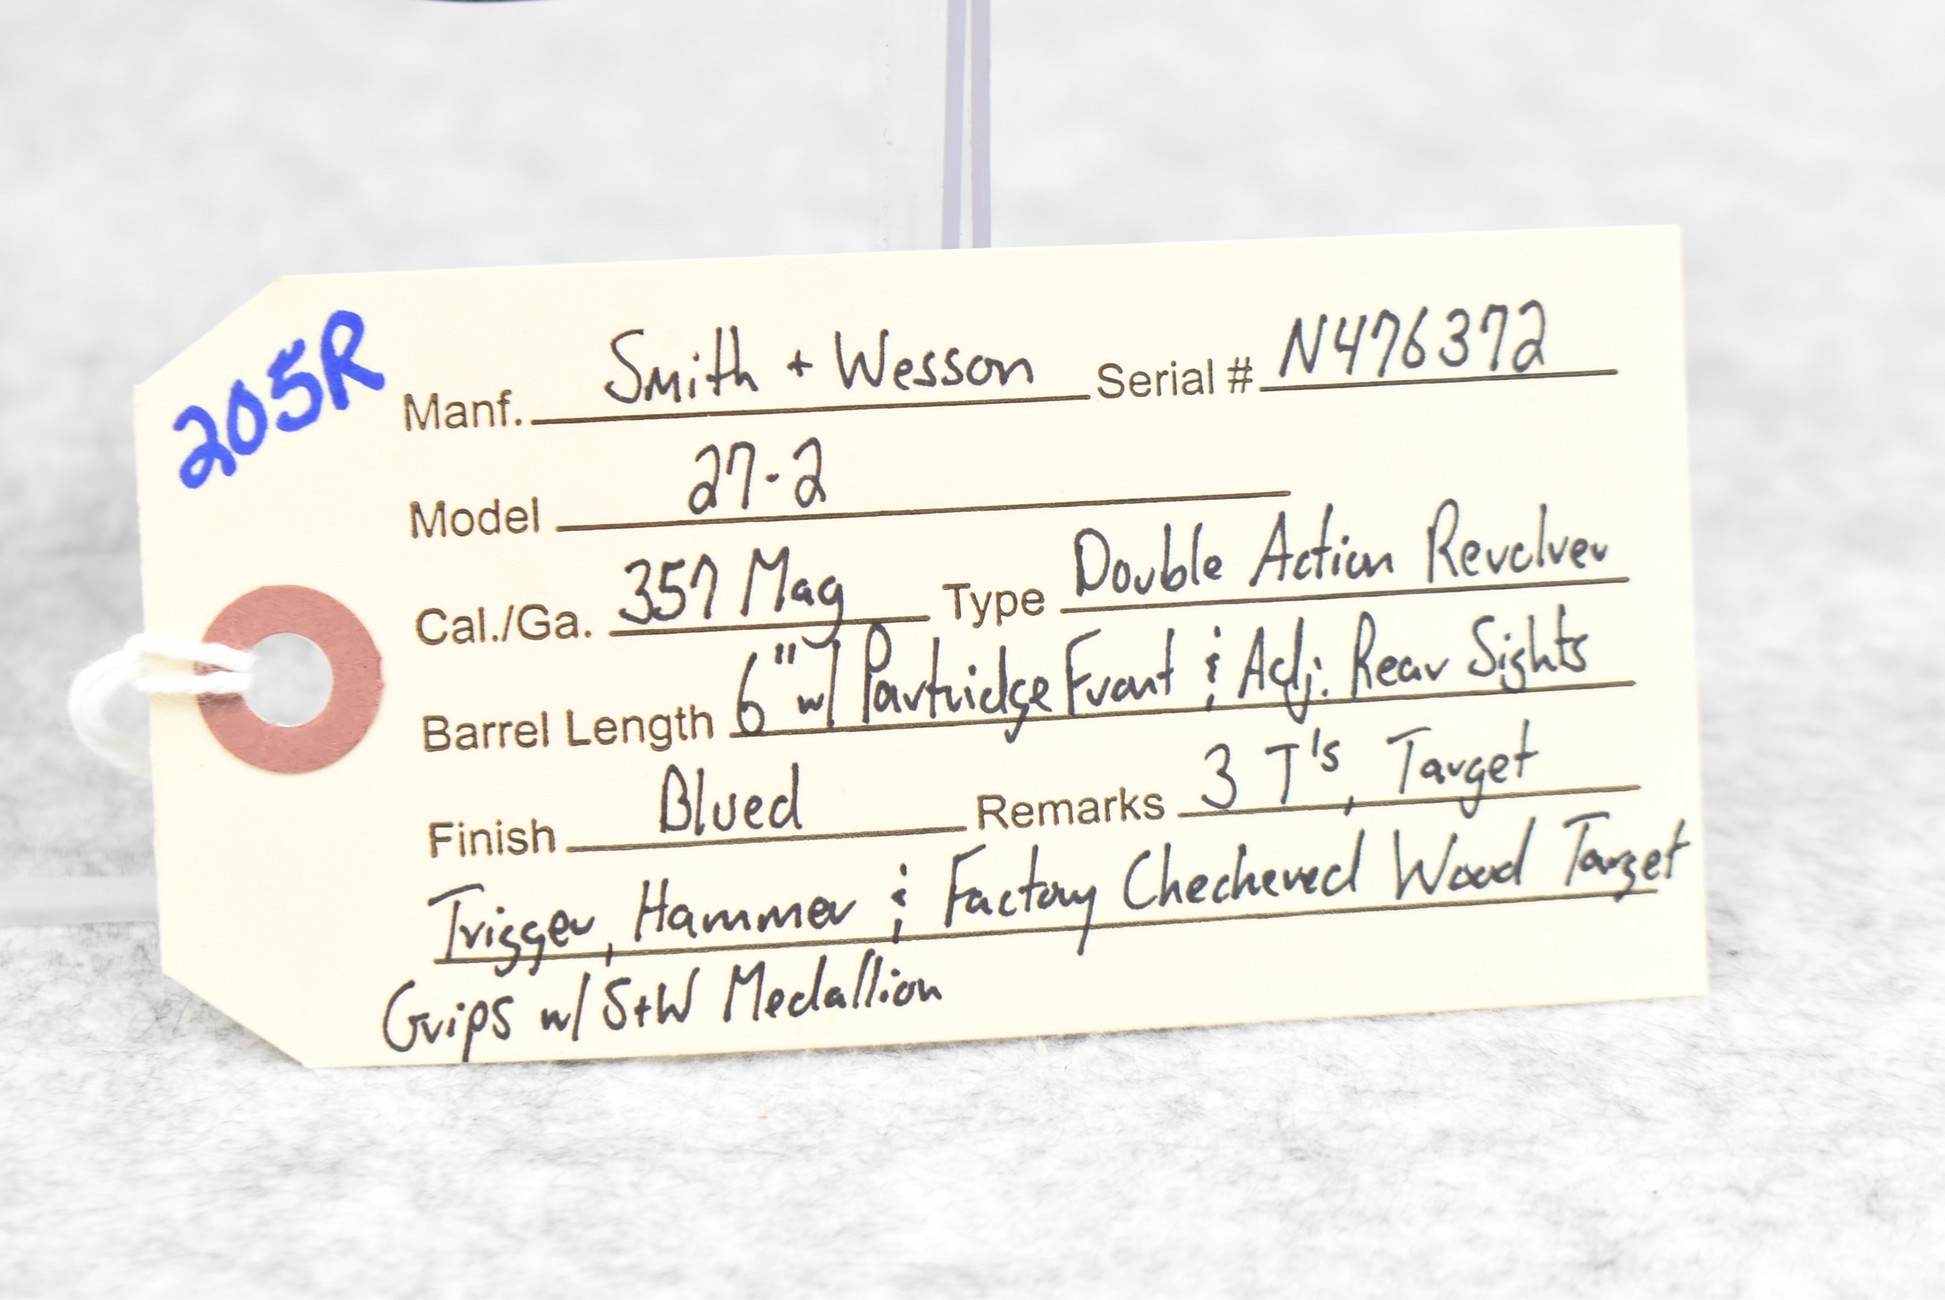 205R
Manf. Smith + Wesson Serial # N476372
Model 27-2
Cal./Ga. 357 Mag Type Double Action Revolver
Barrel Length 6" w/ Partridge Front & Adj. Rear Sights
Finish Blued Remarks 3 T's, Target
Trigger, Hammer & Factory Checkered Wood Target
Grips w/ S+W Medallion